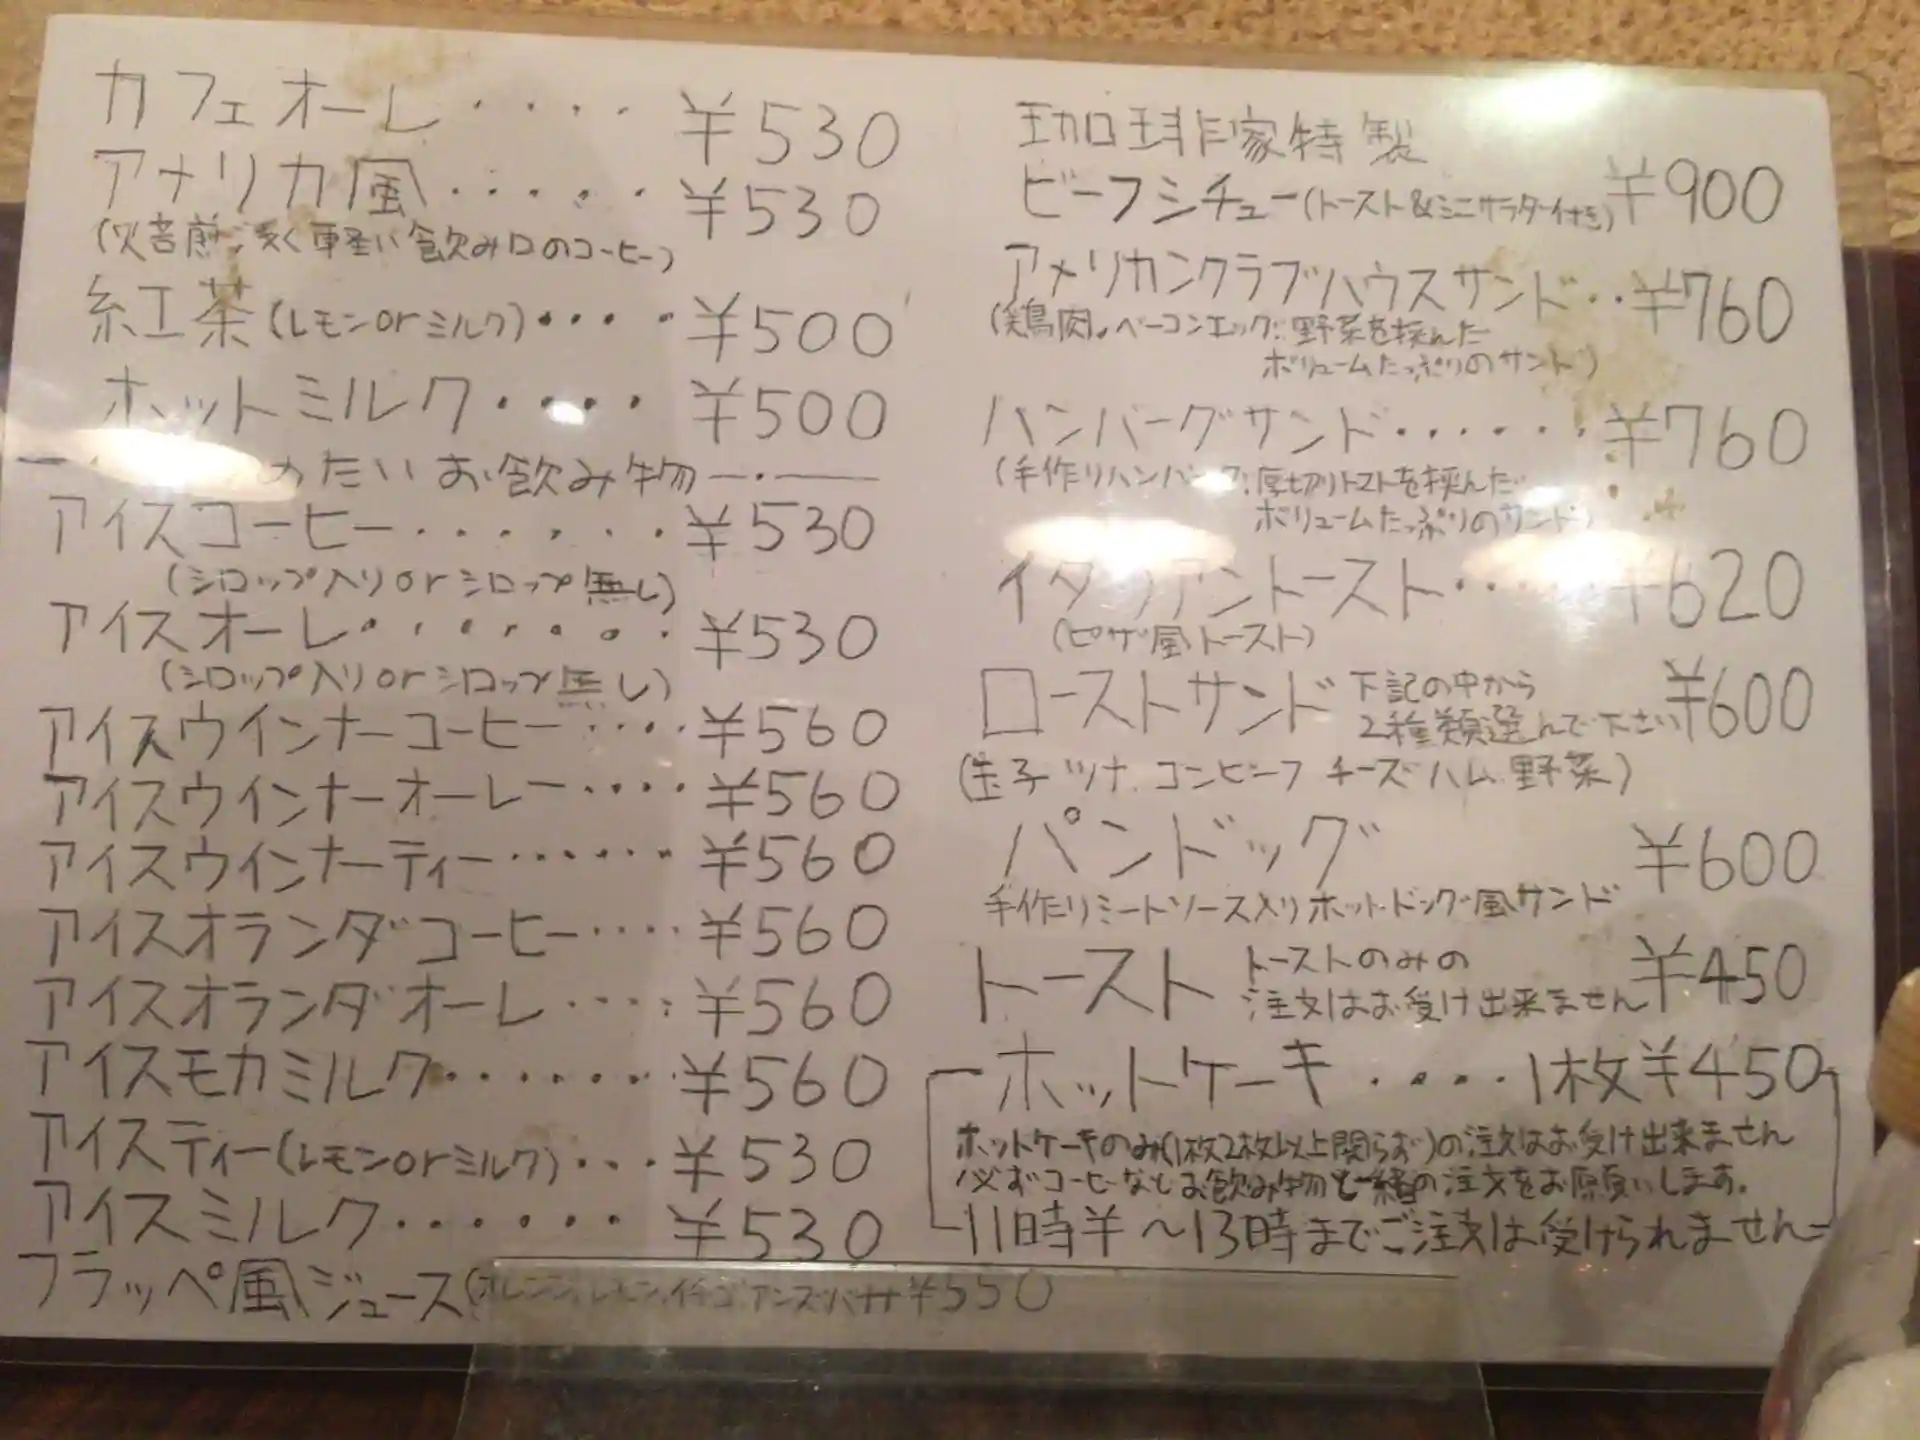 カフェオーレ・・・・¥530
アメリカ風・・・・・・¥530
(焙煎浅く軽い飲み口のコーヒー)
紅茶(レモンorミルク)・・・・¥500
ホットミルク・・・・¥500
めたいお飲み物
アイスコーヒー・・・・・・¥530
(シロップ入りorシロップ無し)
アイスオーレ・・・・・・・¥530
(シロップ入りorシロップ無し)
アイスウインナーコーヒー・・・・¥560
アイスウインナーオーレー・・・・¥560
アイスウインナーティー・・・・・・¥560
アイスオランダコーヒー・・・・¥560
アイスオランダオーレ・・・・¥560
アイスモカミルク・・・・・・・¥560
アイスティー(レモンorミルク)・・・¥530
アイスミルク・・・・・・¥530
フラッペ風ジュース(オレンジ,レモン,イチゴ,アンズ・バナナ ¥550
珈琲家特製
ビーフシチュー(トースト&ミニサラダー付き)¥900
アメリカンクラブハウスサンド・・¥760
(鶏肉、ベーコンエッグ、野菜を挟んだ
ボリュームたっぷりのサンド)
ハンバーグサンド・・・・・・¥760
(手作りハンバーグ、厚切りトマトを挟んだ
ボリュームたっぷりのサンド)
イタリアントースト・・・¥620
(ピザ風トースト)
ローストサンド 下記の中から ¥600
2種類選んで下さい
(玉子 ツナ コンビーフ チーズ ハム 野菜)
パンドッグ ¥600
手作りミートソース入りホットドッグ風サンド
トースト トーストのみの ¥450
注文はお受け出来ません
ホットケーキ・・・・1枚¥450
ホットケーキのみ(1枚2枚以上関らず)の注文はお受け出来ません
必ずコーヒーなどお飲み物と一緒の注文をお願いします。
11時半〜13時までご注文は受けられません